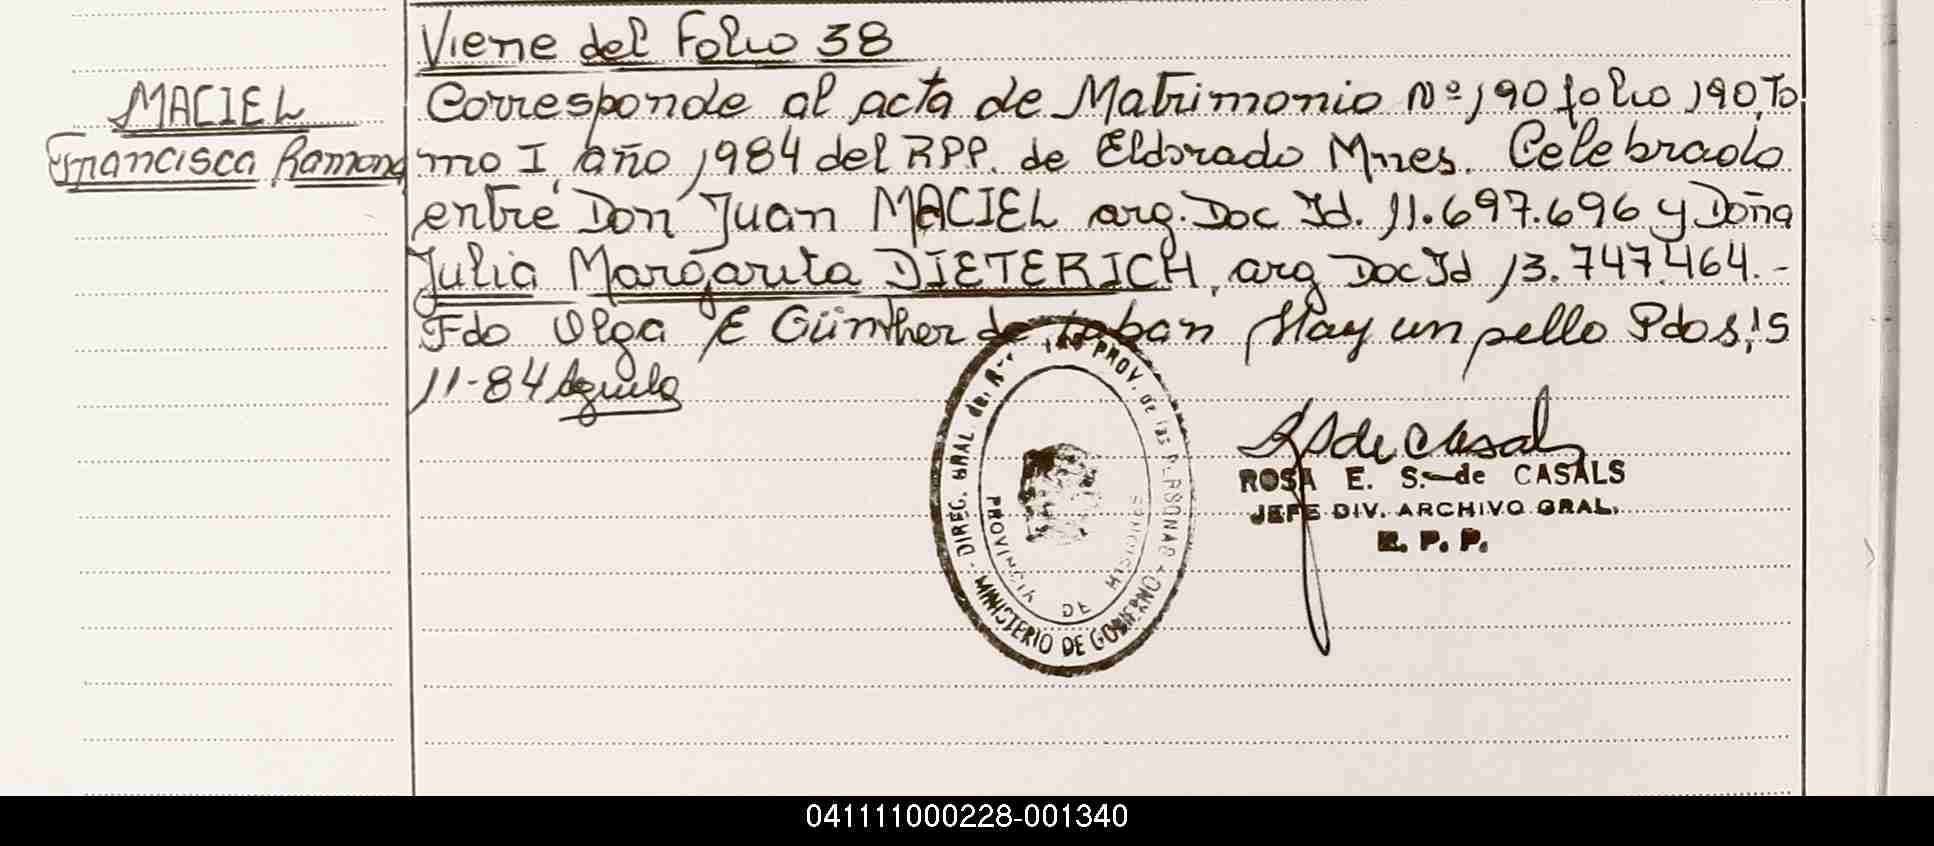 Viene del Folio 38
MACIEL
Francisca Ramona
Corresponde al acta de Matrimonio Nº 190 folio 190, To
mo I, año 1984 del RPP. de Eldorado Mnes. Celebrado
entre Don Juan MACIEL arg. Doc Id. 11.697.696 y Doña
Julia Margarita DIETERICH, arg Doc Id 13.747.464.-
Fdo Olga E Günther de Hay un sello Pdos, 15
11-84
DIREC. GRAL de PROV. de las PERSONAS
MINISTERIO DE GOBIERNO
PROVINCIA DE MISIONES
ROSA E. S. de CASALS
JEFE DIV. ARCHIVO GRAL.
R. P. P.
041111000228-001340